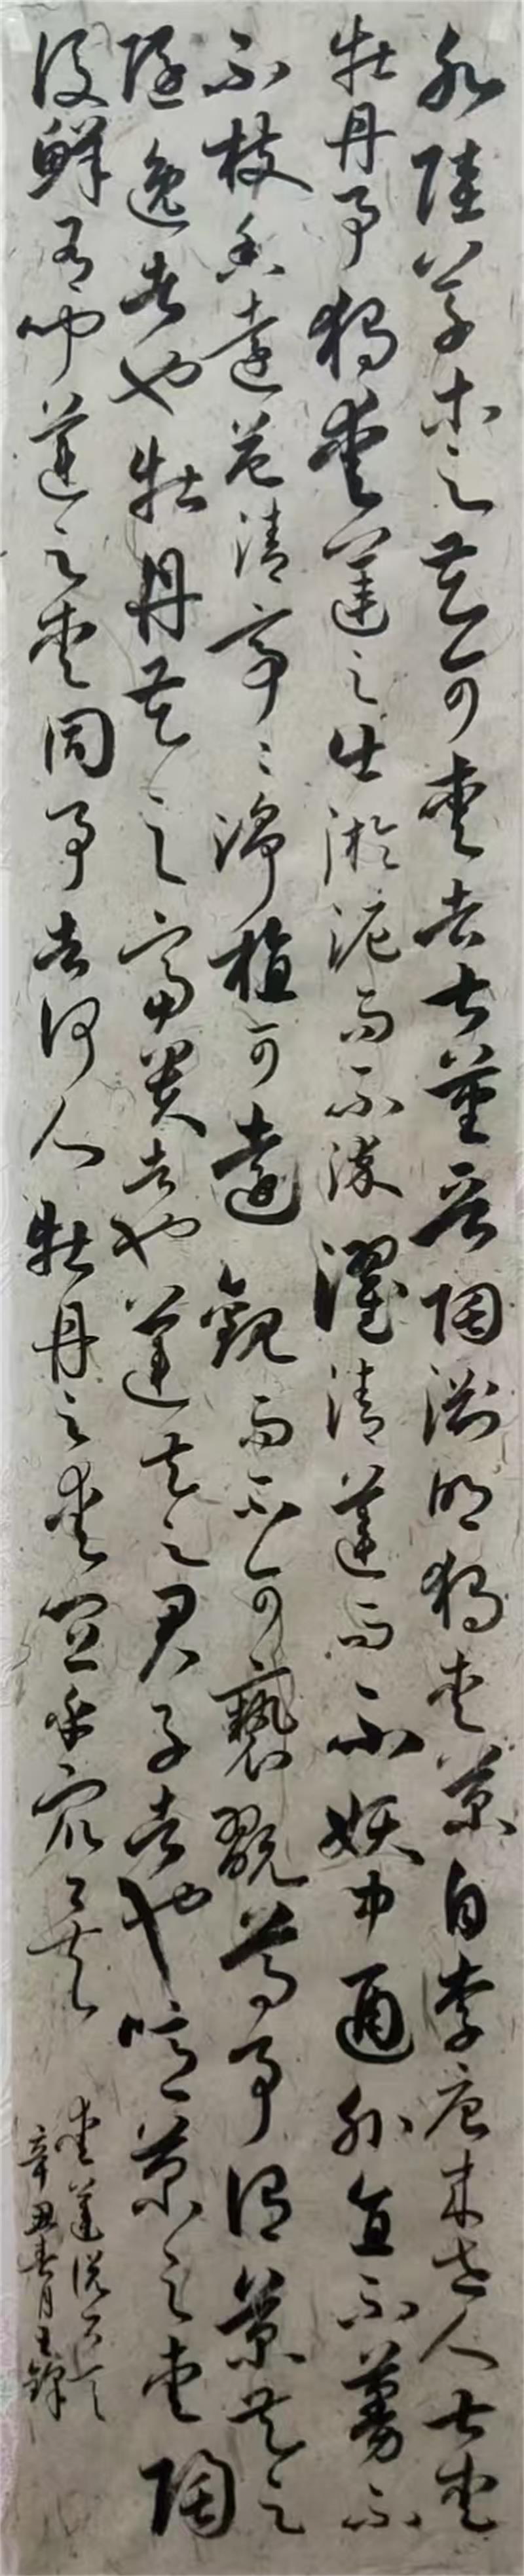 水陸草木之花可愛者甚蕃晋陶渊明獨愛菊自李唐来世人甚愛
牡丹予獨愛蓮之出淤泥而不染濯清蓮而不妖中通外直不蔓不
不枝香遠益清亭〻淨植可遠觀而不可褻翫焉予謂菊花之
隱逸者也牡丹花之富貴者也蓮花之君子者也噫菊之愛陶
後鮮有聞蓮之愛同予者何人牡丹之愛宜乎眾〻矣
愛蓮說
辛丑春月